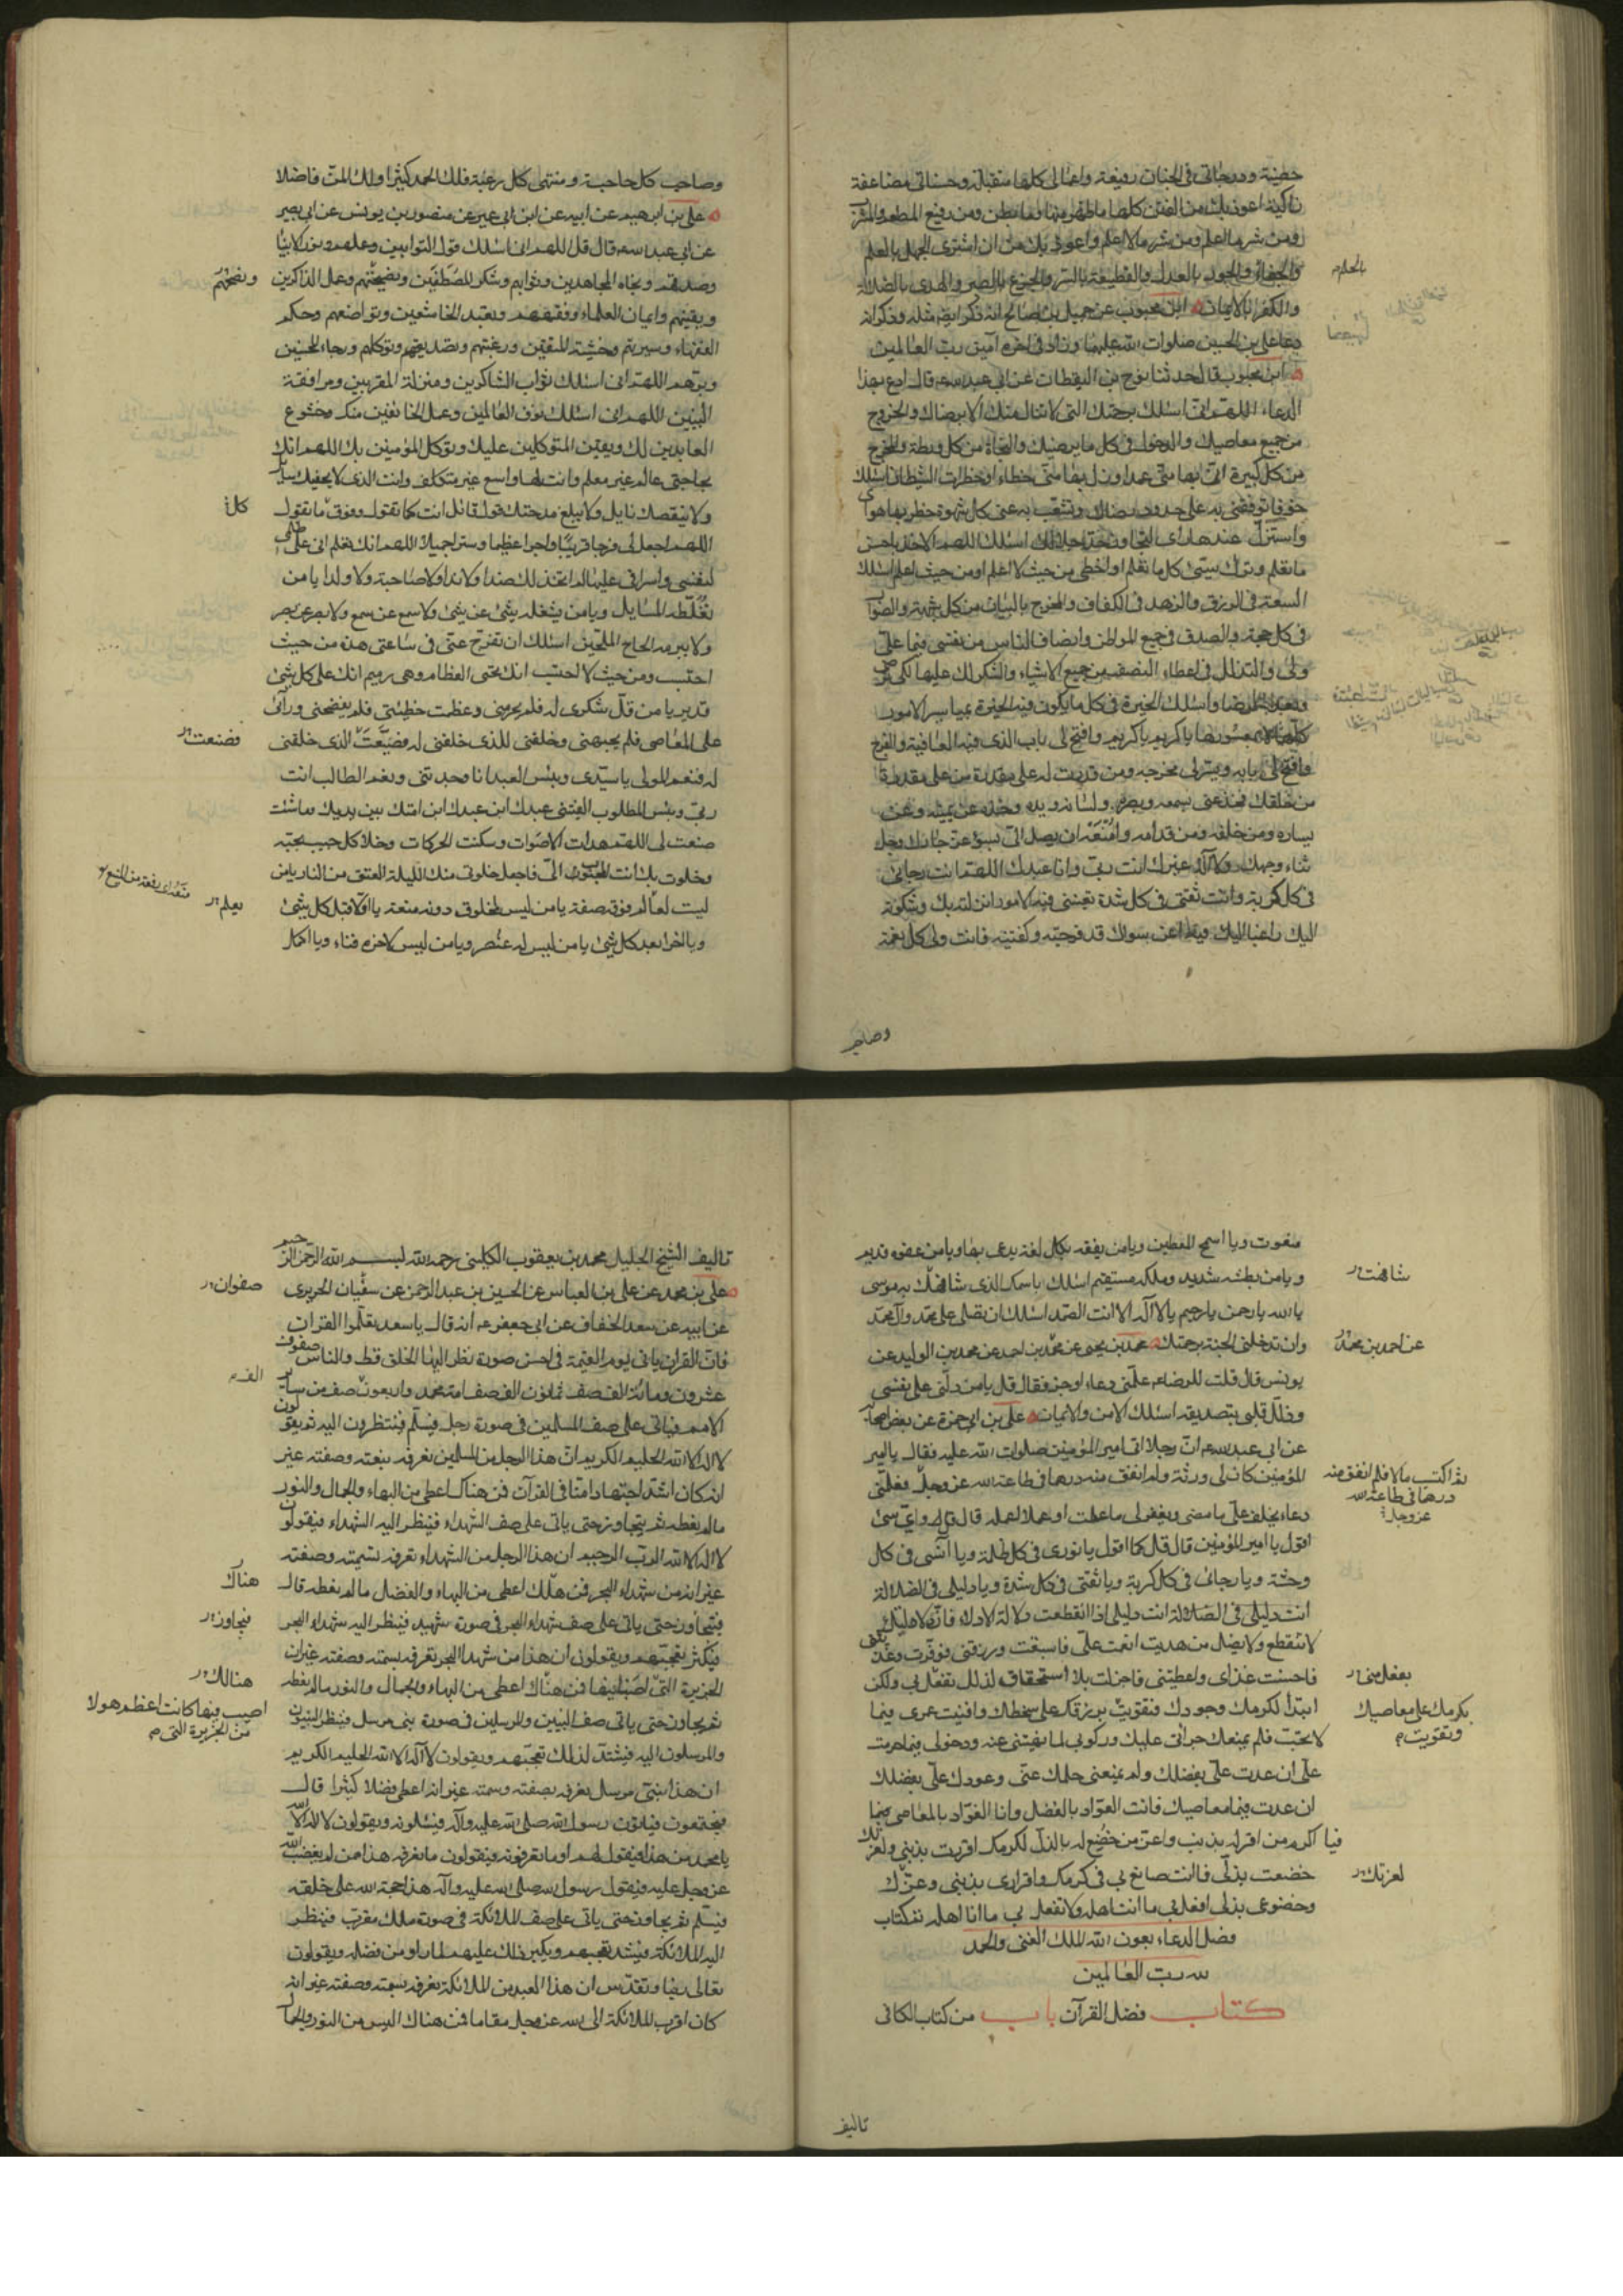 خطيئة ودرجاتى فى الجنات رفيعة واعمالى كلها متقبلة وحسناتى مضاعفة
زاكية اعوذ بك من الفتن كلها ما ظهر منها وما بطن ومن رفيع المطعم والمشرب
ومن شر ما اعلم ومن شر ما لا اعلم واعوذ بك من ان اشترى الجهل بالعلم
والجفاء والجور بالعدل والقطيعة بالبر والجزع بالصبر والهدى بالضلالة
بالحلم
والكفر بالايمان ابن محبوب عن جميل بن صالح انه ذكر ايضا مثله وذكر انه
دعا على بن الحسين صلوات الله عليهما وزاد فى اخره آمين رب العالمين
ابن محبوب قال حدثنا نوح بن اليقطان عن ابى عبد الله ع قال ادع بهذا
الدعاء اللهم انى اسئلك برحمتك التى لا تنال منك الا برضاك والخروج
من جميع معاصيك والدخول فى كل ما يرضيك والنجاة من كل ورطة والمخرج
من كل كبيرة اتى بها منى عمد او زل بها منى خطاء او خطرات الشيطان اسئلك
خوفا توقفنى به على حدود رضاك وتشعب به عنى كل شهوة خطر بها هواى
واستزل عندها راى ليتجاوز حد حلالك اسئلك اللهم الاخذ باحسن
ما تعلم وترك سيئ كل ما تعلم او اخطى من حيث لا اعلم او من حيث اعلم اسئلك
السعة فى الرزق والزهد فى الكفاف والمخرج بالبيان من كل شبهة والصواب
فى كل حجة والصدق فى جميع المواطن وانصاف الناس من نفسى فيما على
ولى والتذلل فى اعطاء النصف من جميع الاشياء والشكر لك عليها لكى ترضى
وبعد الرضا واسئلك الخيرة فى كل ما يكون فيه الخيرة بميسر الامور
كلها لا بمعسورها يا كريم يا كريم يا كريم وافتح لى باب الذى فيه العافية والفرج
وافتح لى بابه ويسر لى مخرجه ومن قدرت له على مقدرة من على مقدرة
من خلقك فخذ عنى بسمعه وبصره ولسانه ويده وخذه عن يمينه وعن
يساره ومن خلفه ومن قدامه وامنعه ان يصل الى بسوء عز جارك وجل
ثناء وجهك ولا اله غيرك انت ربى وانا عبدك اللهم انت رجائى
فى كل كربة وانت ثقتى فى كل شدة
اليك راغبا اليك فيه عمن سواك قد فرجته وكفيته فانت ولى كل نعمة
وصاحب
وصاحب كل حاجة ومنتهى كل رغبة فلك الحمد كثيرا ولك المن فاضلا
على بن ابرهيم عن ابيه عن ابن ابى عمير عن منصور بن يونس عن ابى بصير
عن ابى عبد الله ع قال قل اللهم انى اسئلك قول التوابين وعملهم ونور الانبياء
وصدقهم ونجاة المجاهدين وثوابهم وشكر المصطفين ونصيحتهم وعمل الذاكرين
ونصحهم
ويقينهم وايمان العلماء وفقههم وتعبد الخاشعين وتواضعهم وحكم
الفقهاء وسيرتهم وخشية المتقين ورغبتهم وتصديق المؤمنين وتوكلهم ورجاء المحسنين
وبرهم اللهم انى اسئلك ثواب الشاكرين ومنزلة المقربين ومرافقة
النبيين اللهم انى اسئلك خوف العاملين وعمل الخائفين منك وخشوع
العابدين لك ويقين المتوكلين عليك وتوكل المؤمنين بك اللهم انك
بحاجتى عالم غير معلم وانت لها واسع غير متكلف وانت الذى لا يحفيك سائل
ولا ينقصك نايل ولا يبلغ مدحتك قول قائل انت كما تقول وفوق ما نقول
كل
اللهم اجعل لى فرجا قريبا واجرا عظيما وسترا جميلا اللهم انك تعلم انى على ظلمى
لنفسى واسرافى عليها لم اتخذ لك ضدا ولا ندا ولا صاحبة ولا ولدا يا من
تغلطه المسايل ويا من يشغله شئ عن شئ ولا سمع عن سمع ولا بصر عن بصر
ولا يبرمه الحاح الملحين اسئلك ان تفرج عنى فى ساعتى هذه من حيث
احتسب ومن حيث لا احتسب انك تحيى العظام وهى رميم انك على كل شئ
قدير يا من قل شكرى له فلم يحرمنى وعظمت خطيئتى فلم يفضحنى ورآنى
على المعاصى فلم يجبهنى وخلقنى للذى خلقنى له فضيعت الذى خلقنى
فصنعت
له فنعم المولى يا سيدى وبئس العبد انا وجدتنى ونعم الطالب انت
ربى وبئس المطلوب الفيتنى عبدك ابن عبدك ابن امتك بين يديك ما شئت
صنعت لى اللهم هدات الاصوات وسكنت الحركات وخلا كل حبيب بحبيبه
وخلوت بك انت المحبوب الى فاجعل خلوتى منك الليلة العتق من النار يا من
ليست لعالم فوقه صفة يا من ليس لمخلوق دونه منعة يا اولا قبل كل شئ
يعلم
ويا اخرا بعد كل شئ يا من ليس له عنصر ويا من ليس لاخره فناء ويا اكمل
منعوت ويا اسمح المعطين ويا من يفقه بكل لغة يدعى بها ويا من عفوه قديم
ويا من بطشه شديد وملكه مستقيم اسئلك باسمك الذى شافهك به موسى
شافهت
يا الله يا رحمن يا رحيم يا لا اله الا انت الصمد اسئلك ان تصلى على محمد وآل محمد
وان تدخلنى الجنة برحمتك محمد بن يحيى عن محمد بن احمد عن محمد بن الوليد عن
عن احمد بن محمد
يونس قال قلت للرضا ع علمنى دعاء اوجز فقال قل يا من دلنى على نفسى
وذلل قلبى بتصديقه اسئلك الامن والايمان على بن ابى حمزة عن بعض اصحابه
عن ابى عبد الله ع ان رجلا اتى امير المؤمنين صلوات الله عليه فقال يا امير
المؤمنين كان لى ورثة ولم انفق منه درهما فى طاعة الله عز وجل فعلمنى
ثم اكتسب مالا فلم انفق منه
درهما فى طاعة الله
عز وجل
دعاء يخلف على ما مضى ويغفر لى ما عملت او عملا اعمله قال قل واى شئ
اقول يا امير المؤمنين قال قل كما اقول يا نورى فى كل ظلمة ويا انسى فى كل
وحشة ويا رجائى فى كل كربة ويا ثقتى فى كل شدة ويا دليلى فى الضلالة
انت دليلى فى الضلالة انت دليلى اذا انقطعت دلالة الادلاء فان دلالتك
لا تنقطع ولا يضل من هديت انعمت على فاسبغت ورزقتنى فوفرت وغذيتنى
فاحسنت غذاى واعطيتنى فاجزلت بلا استحقاق لذلك بفعل بى ولكن
بفعل منى
ابتدأ لكرمك وجودك فتقويت برزقك على سخطك وافنيت عمرى فيما
بكرمك على معاصيك
وتقويت
لا تحب فلم يمنعك جرأتى عليك وركوبى لما نهيتنى عنه ودخولى فيما حرمت
على ان عدت على بفضلك ولم يمنعنى حلمك عنى وعودك على بفضلك
ان عدت فى معاصيك فانت العواد بالفضل وانا العواد بالمعاصى
فيا اكرم من اقر له بذنب واعز من خضع له بالذل لكرمك اقررت بذنبى ولعزك
خضعت بذلى فما انت صانع بى فى كرمك واقرارى بذنبى وعزك
لعزتك
وخضوعى بذلى افعل بى ما انت اهله ولا تفعل بى ما انا اهله تم كتاب
فضل الدعاء بعون الله الملك الغنى والحمد
لله رب العالمين
كتاب فضل القرآن باب من كتاب الكافى
تاليف
تاليف الشيخ الجليل محمد بن يعقوب الكلينى رحمه الله بسم الله الرحمن الرحيم
على بن محمد عن على بن العباس عن الحسين بن عبد الرحمن عن سفيان الحريرى
صفوان
عن ابيه عن سعد الخفاف عن ابى جعفر ع انه قال يا سعد تعلموا القران
فان القران ياتى يوم القيمة فى احسن صورة نظر اليها الخلق قط والناس صفوف
عشرون ومائة الف صف ثمانون الف صف امة محمد واربعون صف من سائر
الف
الامم فياتى على صف المسلمين فى صورة رجل فيسلم فينتظرون اليه ثم يقولون
لا اله الا الله الحليم الكريم ان هذا الرجل من المسلمين نعرفه بنعته وصفته غير
انه كان اشد اجتهادا منا فى القرآن فمن هناك اعطى من البهاء والجمال والنور
ما لم يعطه ثم يتجاوز حتى ياتى على صف الشهداء فينظر اليه الشهداء فيقولون
لا اله الا الله الرب الرحيم ان هذا الرجل من الشهداء نعرفه بسمته وصفته
غير انه من شهداء البحر فمن هناك اعطى من البهاء والفضل ما لم نعطه قال
هناك
فيتجاوز حتى ياتى على صف شهداء البحر فى صورة شهيد فينظر اليه شهداء البحر
فيجاوز
فيكثر تعجبهم ويقولون ان هذا من شهداء البحر نعرفه بسمته وصفته غير ان
الجزيرة التى اصيب فيها فمن هناك اعطى من البهاء والجمال والنور ما لم نعطه
هنالك
اصيب فيها كانت اعظم هولا
من الجزيرة التى
ثم يجاوز حتى ياتى صف النبيين والمرسلين فى صورة نبى مرسل فينظر النبيون
والمرسلون اليه فيشتد لذلك تعجبهم ويقولون لا اله الا الله الحليم الكريم
ان هذا لنبى مرسل نعرفه بصفته وسمته غير انه اعطى فضلا كثيرا قال
فيجتمعون فياتون رسول الله صلى الله عليه وآله فيسئلونه ويقولون
يا محمد من هذا فيقول لهم اوما تعرفونه فيقولون ما نعرفه هذا من لم يغضب الله
عز وجل عليه فيقول رسول الله صلى الله عليه وآله هذا حجة الله على خلقه
فيسلم ثم يجاوز حتى ياتى على صف الملائكة فى صورة ملك مقرب فينظر
اليه الملائكة فيشتد تعجبهم ويكبر ذلك عليهم لما راو من فضله ويقولون
تعالى ربنا وتقدس ان هذا العبد من الملائكة نعرفه بسمته وصفته غير انه
كان اقرب الملائكة الى الله عز وجل مقاما فمن هناك البس من النور والجمال